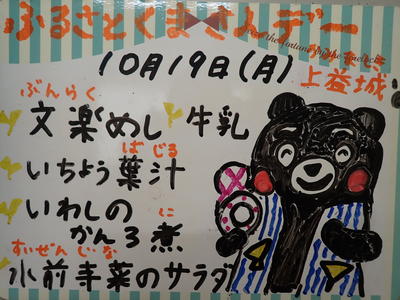 ふるさとくまさんデー
10月19日(月)
上益城
ぶんらく
文楽めし 牛乳
ばじる
いちょう葉汁
いわしの
に
かんろ煮
すいぜんじな
水前寺菜のサラダ